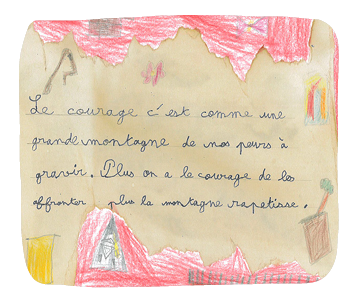 Le courage c'est comme une
grande montagne de nos peurs à
gravir. Plus on a le courage de les
affronter plus la montagne rapetisse.